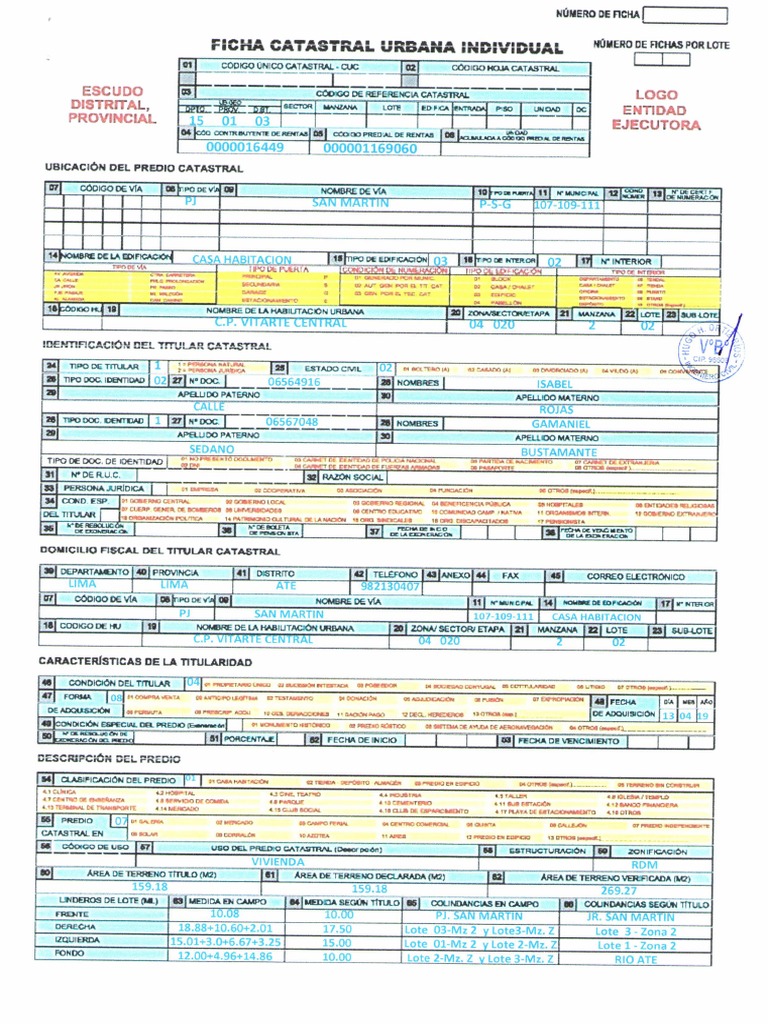 NÚMERO DE FICHA
FICHA CATASTRAL URBANA INDIVIDUAL
NÚMERO DE FICHAS POR LOTE
ESCUDO DISTRITAL, PROVINCIAL
LOGO ENTIDAD EJECUTORA
01 CÓDIGO ÚNICO CATASTRAL - CUC 02 CÓDIGO HOJA CATASTRAL
03 CÓDIGO DE REFERENCIA CATASTRAL
UBIGEO
DPTO. PROV. DIST. SECTOR MANZANA LOTE EDIFICA ENTRADA PISO UNIDAD DC
15 01 03
04 CÓD. CONTRIBUYENTE DE RENTAS 05 CÓDIGO PREDIAL DE RENTAS 06 UNIDAD ACUMULADA A CÓDIGO PREDIAL DE RENTAS
0000016449 000001169060
UBICACIÓN DEL PREDIO CATASTRAL
07 CÓDIGO DE VÍA 08 TIPO DE VÍA 09 NOMBRE DE VÍA 10 TIPO DE PUERTA 11 Nº MUNICIPAL 12 COND. NÚMER. 13 Nº DE CERTIF. DE NUMERACIÓN
PJ SAN MARTIN P-S-G 107-109-111
14 NOMBRE DE LA EDIFICACIÓN CASA HABITACION 15 TIPO DE EDIFICACIÓN 03 16 TIPO DE INTERIOR 02 17 Nº INTERIOR
TIPO DE VÍA TIPO DE PUERTA CONDICIÓN DE NUMERACIÓN TIPO DE EDIFICACIÓN TIPO DE INTERIOR
PRINCIPAL P 01 GENERADO POR MUNIC. 01 BLOCK
SECUNDARIA S 02 CASA / CHALET
GARAGE G 03 EDIFICIO
ESTACIONAMIENTO E 04 PABELLÓN
18 CÓDIGO HU 19 NOMBRE DE LA HABILITACIÓN URBANA 20 ZONA/SECTOR/ETAPA 21 MANZANA 22 LOTE 23 SUB-LOTE
C.P. VITARTE CENTRAL 04 020 2 02
IDENTIFICACIÓN DEL TITULAR CATASTRAL
24 TIPO DE TITULAR 1 1 = PERSONA NATURAL 2 = PERSONA JURÍDICA 25 ESTADO CIVIL 02 01 SOLTERO (A) 02 CASADO (A) 03 DIVORCIADO (A) 04 VIUDO (A) 05 CONVIVIENTE
26 TIPO DOC. IDENTIDAD 02 27 Nº DOC. 06564916 28 NOMBRES ISABEL
29 APELLIDO PATERNO 30 APELLIDO MATERNO
CALLE ROJAS
26 TIPO DOC. IDENTIDAD 1 27 Nº DOC. 06567048 28 NOMBRES GAMANIEL
29 APELLIDO PATERNO 30 APELLIDO MATERNO
SEDANO BUSTAMANTE
TIPO DE DOC. DE IDENTIDAD 01 NO PRESENTÓ DOCUMENTO 02 DNI 03 CARNET DE IDENTIDAD DE POLICIA NACIONAL 04 CARNET DE IDENTIDAD DE FUERZAS ARMADAS 05 PARTIDA DE NACIMIENTO 06 PASAPORTE 07 CARNET DE EXTRANJERIA 08 OTROS (especif.)
31 Nº DE R.U.C. 32 RAZÓN SOCIAL
33 PERSONA JURÍDICA 01 EMPRESA 02 COOPERATIVA 03 ASOCIACIÓN 04 FUNDACIÓN 05 OTROS (especif.)
34 COND. ESP. DEL TITULAR 01 GOBIERNO CENTRAL 02 GOBIERNO LOCAL 03 GOBIERNO REGIONAL 04 BENEFICENCIA PÚBLICA 05 HOSPITALES 06 ENTIDADES RELIGIOSAS
07 CUERP. GENERAL DE BOMBEROS 08 UNIVERSIDADES 09 CENTRO EDUCATIVO 10 COMUNIDAD CAMP. / NATIVA 11 ORGANISMOS INTERN. 12 GOBIERNO EXTRANJERO
13 ORGANIZACIÓN POLÍTICA 14 PATRIMONIO CULTURAL DE LA NACIÓN 15 ORG. SINDICALES 16 ORG. DISCAPACITADOS 17 PENSIONISTA
35 Nº DE RESOLUCIÓN DE EXONERACIÓN 36 Nº DE BOLETA DE PENSIONISTA 37 FECHA DE INICIO DE LA EXONERACIÓN 38 FECHA DE VENCIMIENTO DE LA EXONERACIÓN
DOMICILIO FISCAL DEL TITULAR CATASTRAL
39 DEPARTAMENTO 40 PROVINCIA 41 DISTRITO 42 TELÉFONO 43 ANEXO 44 FAX 45 CORREO ELECTRÓNICO
LIMA LIMA ATE 982130407
07 CÓDIGO DE VÍA 08 TIPO DE VÍA 09 NOMBRE DE VÍA 11 Nº MUNICIPAL 14 NOMBRE DE EDIFICACIÓN 17 Nº INTERIOR
PJ SAN MARTIN 107-109-111 CASA HABITACION
18 CODIGO DE HU 19 NOMBRE DE LA HABILITACIÓN URBANA 20 ZONA/ SECTOR/ ETAPA 21 MANZANA 22 LOTE 23 SUB-LOTE
C.P. VITARTE CENTRAL 04 020 2 02
CARACTERÍSTICAS DE LA TITULARIDAD
46 CONDICIÓN DEL TITULAR 04 01 PROPIETARIO ÚNICO 02 SUCESIÓN INTESTADA 03 POSEEDOR 04 SOCIEDAD CONYUGAL 05 COTITULARIDAD 06 LITIGIO 07 OTROS (especif.)
47 FORMA DE ADQUISICIÓN 08 01 COMPRA VENTA 02 ANTICIPO LEGÍTIMA 03 TESTAMENTO 04 DONACIÓN 05 ADJUDICACIÓN 06 FUSIÓN 07 EXPROPIACIÓN
08 PERMUTA 09 PRESCRIP. ADQU 11 DACIÓN PAGO 12 DECL. HEREDEROS 13 OTROS (esp.)
48 FECHA DE ADQUISICIÓN DÍA MES AÑO
13 04 19
49 CONDICIÓN ESPECIAL DEL PREDIO (Exoneración) 01 MONUMENTO HISTÓRICO 02 PREDIO RÚSTICO 03 SISTEMA DE AYUDA DE AERONAVEGACIÓN 04 OTROS (especif.)
50 Nº DE RESOLUCIÓN DE EXONERACIÓN DEL PREDIO 51 PORCENTAJE 52 FECHA DE INICIO 03 FECHA DE VENCIMIENTO
DESCRIPCIÓN DEL PREDIO
54 CLASIFICACIÓN DEL PREDIO 01 01 CASA HABITACIÓN 02 TIENDA - DEPÓSITO - ALMACÉN 03 PREDIO EN EDIFICIO 04 OTROS (especif.) 05 TERRENO SIN CONSTRUIR
4.1 CLÍNICA 4.2 HOSPITAL 4.3 CINE, TEATRO 4.4 INDUSTRIA 4.5 TALLER 4.6 IGLESIA / TEMPLO
4.7 CENTRO DE ENSEÑANZA 4.8 SERVICIO DE COMIDA 4.9 PARQUE 4.10 CEMENTERIO 4.11 SUB ESTACIÓN 4.12 BANCO FINANCIERA
4.13 TERMINAL DE TRANSPORTE 4.14 MERCADO 4.15 CLUB SOCIAL 4.16 CLUB DE ESPARCIMIENTO 4.17 PLAYA DE ESTACIONAMIENTO 4.18 OTROS
55 PREDIO CATASTRAL EN 07 01 GALERIA 02 MERCADO 03 CAMPO FERIAL 04 CENTRO COMERCIAL 05 QUINTA 06 CALLEJÓN 07 PREDIO INDEPENDIENTE
08 SOLAR 09 CORRALÓN 10 AZOTEA 11 AIRES 12 PREDIO EN EDIFICIO 13 OTROS (especif.)
56 CÓDIGO DE USO 57 USO DEL PREDIO CATASTRAL (Descripción) 58 ESTRUCTURACIÓN 59 ZONIFICACIÓN
VIVIENDA RDM
60 ÁREA DE TERRENO TÍTULO (M2) 61 ÁREA DE TERRENO DECLARADA (M2) 62 ÁREA DE TERRENO VERIFICADA (M2)
159.18 159.18 269.27
LINDEROS DE LOTE (ML) 63 MEDIDA EN CAMPO 64 MEDIDA SEGÚN TÍTULO 65 COLINDANCIAS EN CAMPO 66 COLINDANCIAS SEGÚN TÍTULO
FRENTE 10.08 10.00 PJ. SAN MARTIN JR. SAN MARTIN
DERECHA 18.88+10.60+2.01 17.50 Lote 03-Mz 2 y Lote3-Mz. Z Lote 3 - Zona 2
IZQUIERDA 15.01+3.0+6.67+3.25 15.00 Lote 01-Mz 2 y Lote 2-Mz. Z Lote 1 - Zona 2
FONDO 12.00+4.96+14.86 10.00 Lote 2-Mz. Z y Lote 3-Mz. Z RIO ATE